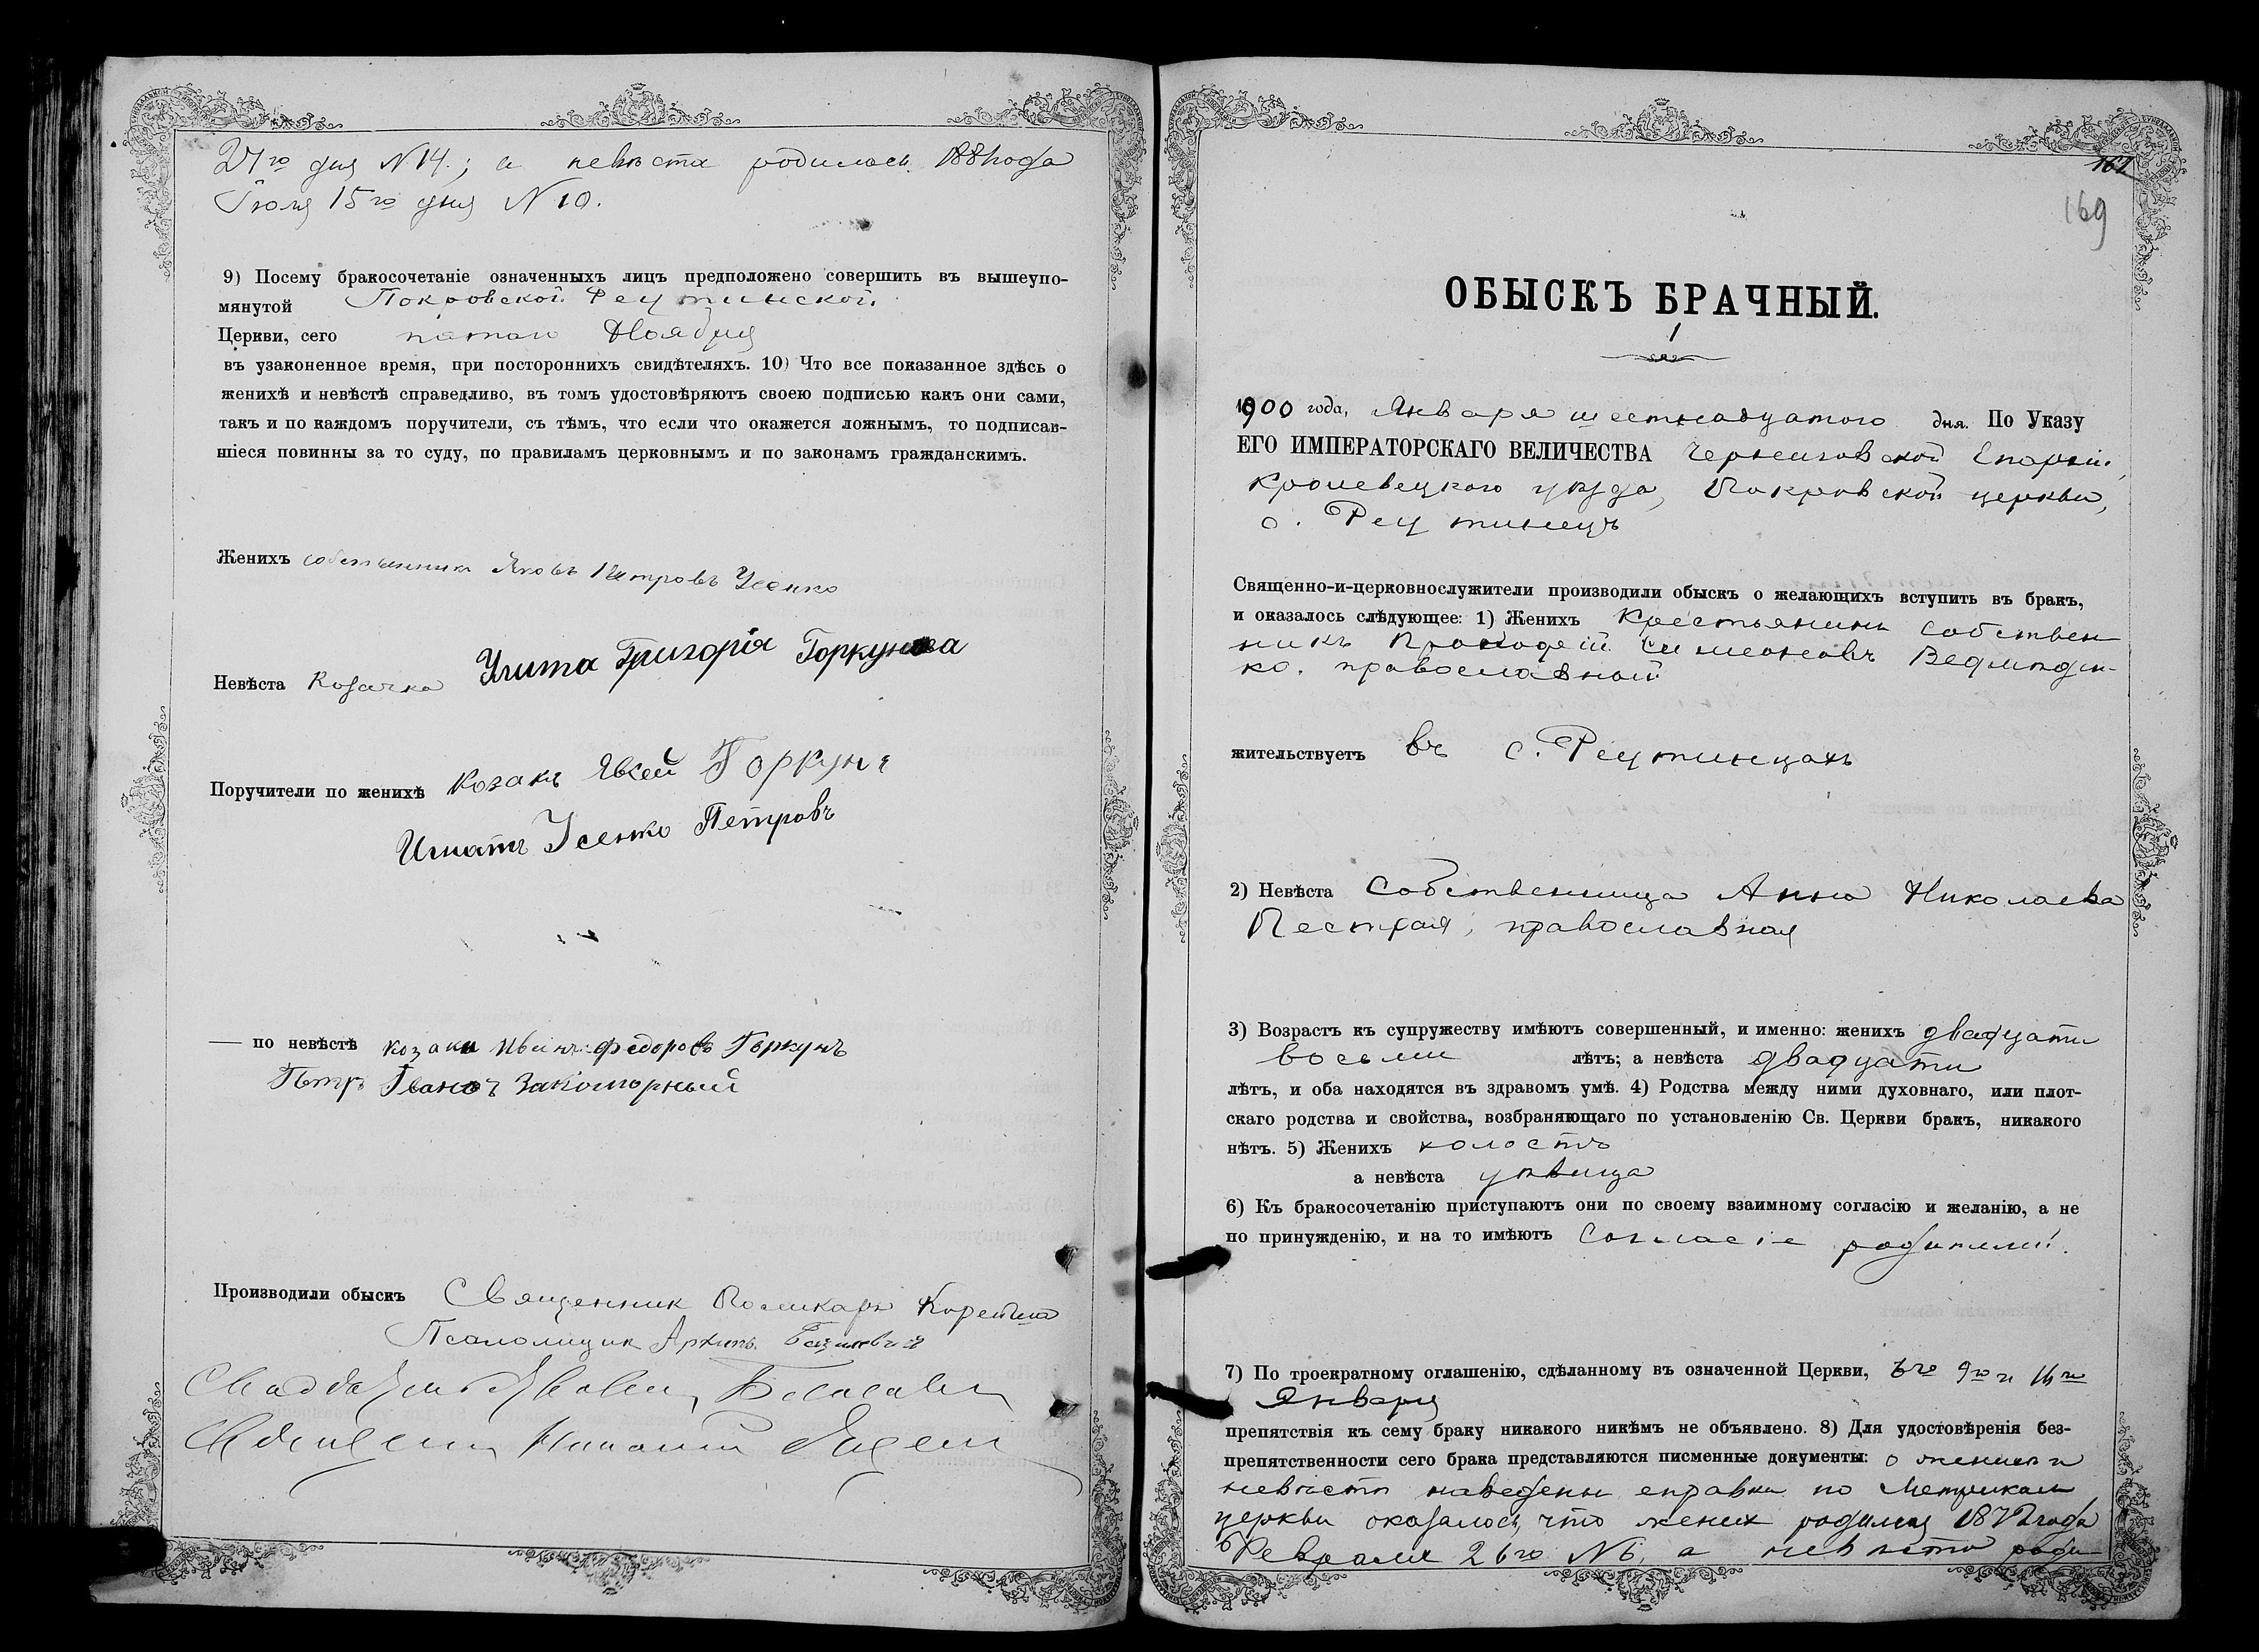 27го дня N 14.; а невѣста родилась 1881 года
Іюля 15го дня N 10.
9) Посему бракосочетаніе означенныхъ лицъ предположено совершить въ вышеупо-
мянутой Покровской Реутинской
Церкви, сего пятаго Ноября
въ узаконенное время, при постороннихъ свидѣтеляхъ. 10) Что все показанное здѣсь о
женихѣ и невѣстѣ справедливо, въ томъ удостовѣряютъ своею подписью какъ они сами,
такъ и по каждомъ поручители, съ тѣмъ, что если что окажется ложнымъ, то подписав-
шіеся повинны за то суду, по правиламъ церковнымъ и по законамъ гражданскимъ.
Женихъ собственникъ Яковъ Петровъ Усенко
Невѣста Козачка Улита Григорія Горкунова
Поручители по женихѣ козакъ Явсей Горкунъ
Игнатъ Усенко Петровъ
— по невѣстѣ козаки Иванъ Федоровъ Горкунъ
Петръ Івановъ Закоморный
Производили обыскъ Священник Поликарп
Псаломщик Архипъ
161
169
ОБЫСКЪ БРАЧНЫЙ.
1
1900 года, Января шестнадцатого дня. По Указу
ЕГО ИМПЕРАТОРСКАГО ВЕЛИЧЕСТВА Черниговской Епархіи,
Кролевецкого уѣзда, Покровской церкви,
с. Реутинецъ
Священно-и-церковнослужители производили обыскъ о желающихъ вступить въ бракъ,
и оказалось слѣдующее: 1) Женихъ Крестьянинъ собствен
никъ Симеоновъ
ко. православной
жительствуетъ въ с. Реутинцахъ
2) Невѣста Собственница Анна Николаева
Пестрая, православная
3) Возрастъ къ супружеству имѣютъ совершенный, и именно: женихъ двадцати
восьми лѣтъ; а невѣста двадцати
лѣтъ, и оба находятся въ здравомъ умѣ. 4) Родства между ними духовнаго, или плот-
скаго родства и свойства, возбраняющаго по установленію Св. Церкви бракъ, никакого
нѣтъ. 5) Женихъ холостъ
а невѣста дѣвица
6) Къ бракосочетанію приступаютъ они по своему взаимному согласію и желанію, а не
по принужденію, и на то имѣютъ согласіе родителей.
7) По троекратному оглашенію, сдѣланному въ означенной Церкви, 6го 9го и 16го
Января
препятствія къ сему браку никакого никѣмъ не объявлено. 8) Для удостовѣренія без-
препятственности сего брака представляются писменные документы: о женихѣ и
невѣстѣ наведены справки по Метрикам
церкви оказалось, что жених родился 1872 года
Февраля 26го N 6, а невѣста роди